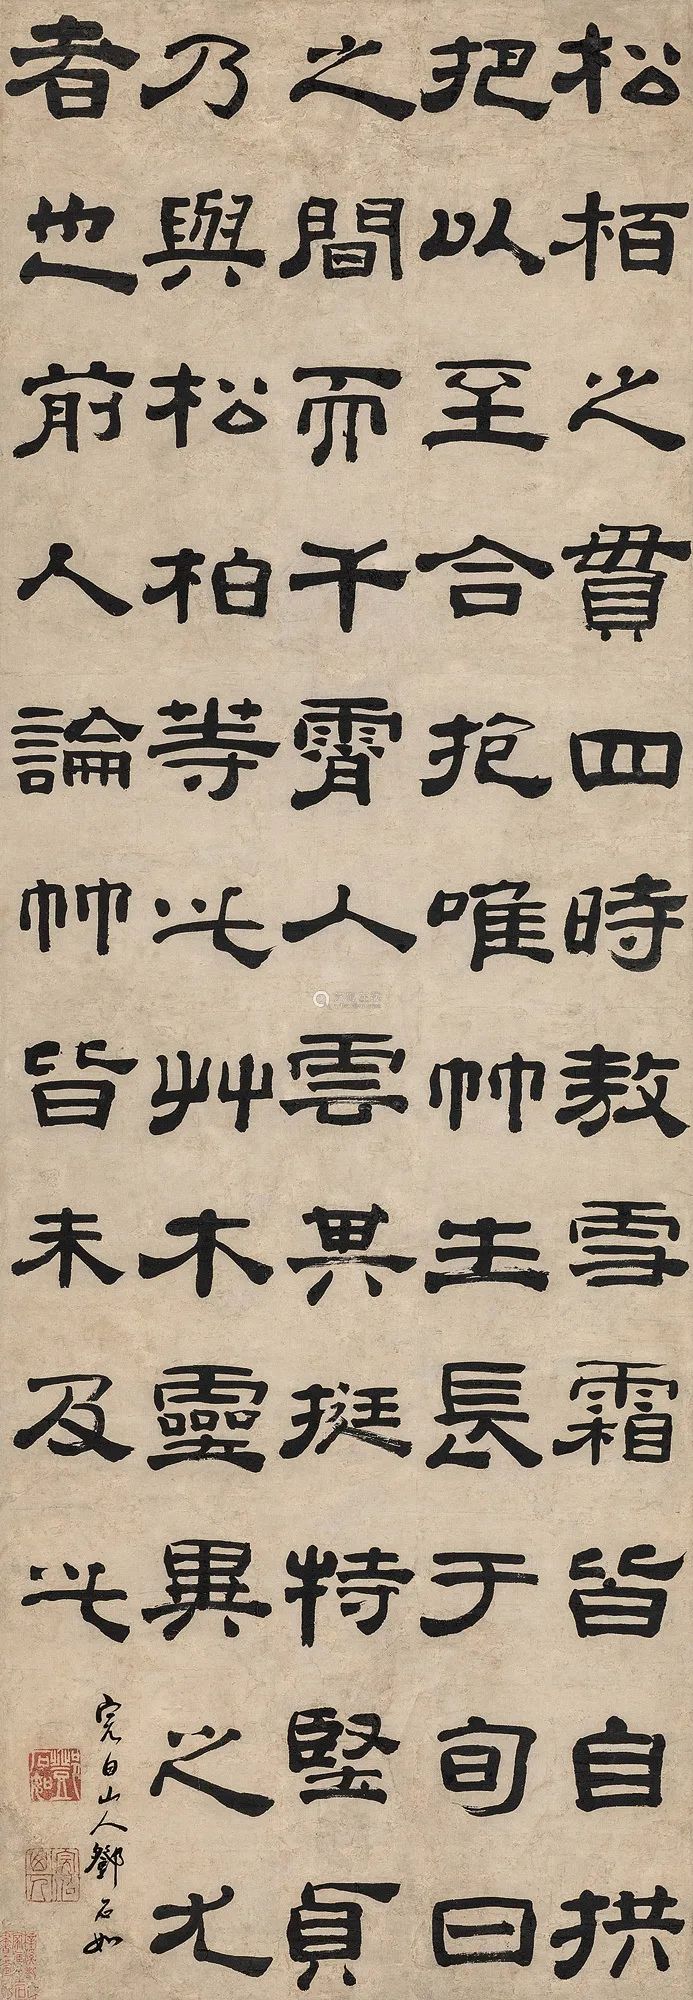 松栢之貫四時敖雪霜皆自拱
把以至合抱唯竹生長于旬日
之間而干霄入雲其挺特堅貞
乃與松柏等此艸木靈異之尤
者也前人論竹皆未及此
完白山人鄧石如